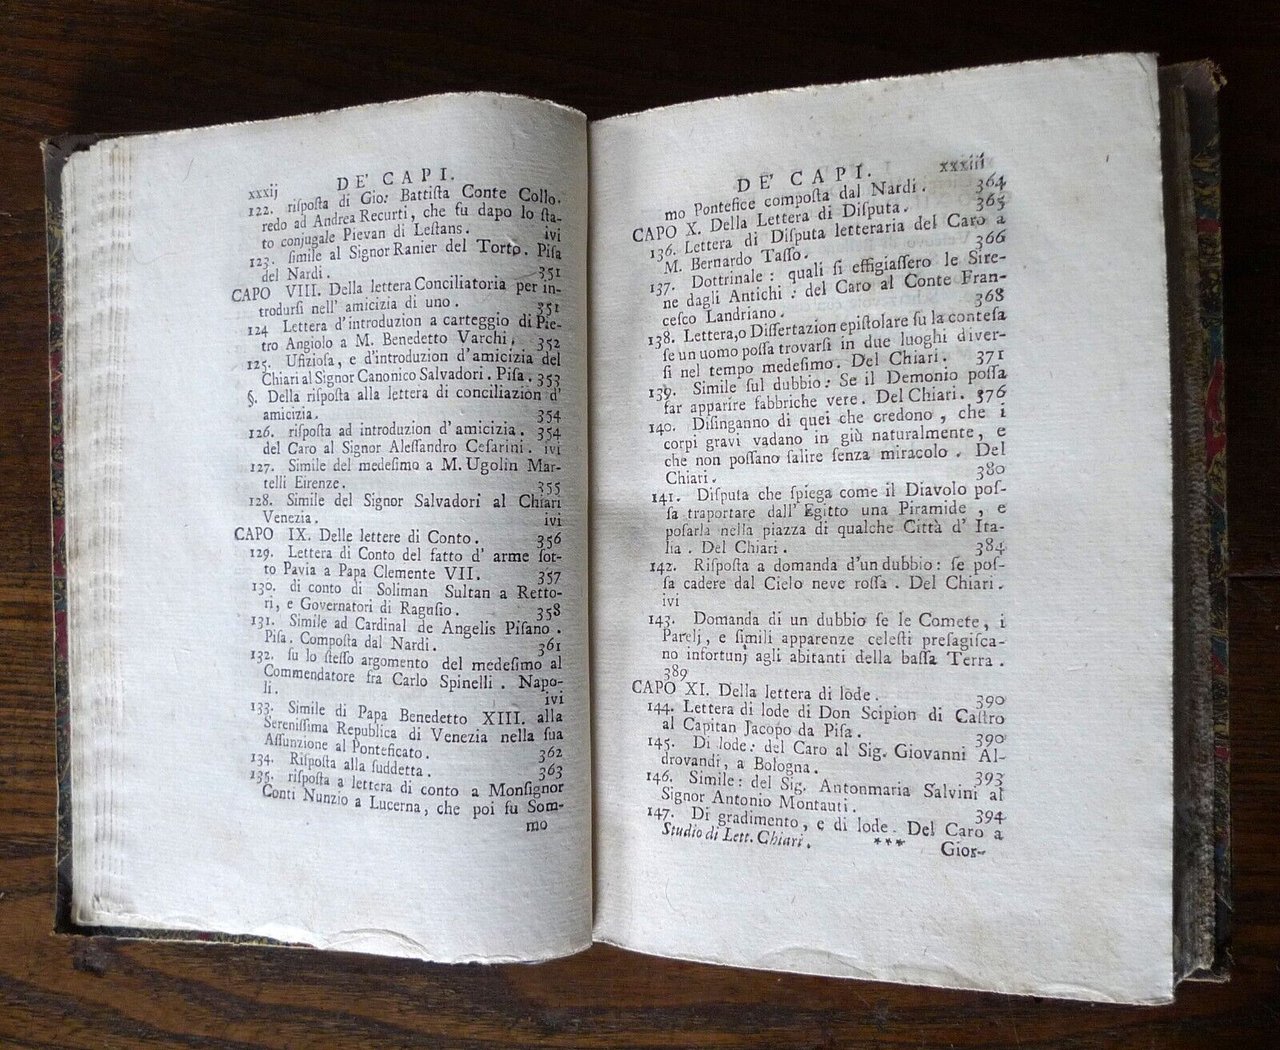 xxxij
DE' CAPI.
122. riſpoſta di Gio: Battiſta Conte Collo.
redo ad Andrea Recurti, che fu dapo lo ſta-
to conjugale Pievan di Leſtans. ivi
123. ſimile al Signor Ranier del Torto. Piſa
del Nardi. 351
CAPO VIII. Della lettera Conciliatoria per in-
trodurſi nell' amicizia di uno. 351
124 Lettera d'introduzion a carteggio di Pie-
tro Angiolo a M. Benedetto Varchi. 352
125. Ufizioſa, e d'introduzion d'amicizia del
Chiari al Signor Canonico Salvadori. Piſa. 353
§. Della riſpoſta alla lettera di conciliazion d'
amicizia. 354
126. riſpoſta ad introduzion d'amicizia. 354
del Caro al Signor Aleſſandro Ceſarini. ivi
127. Simile del medeſimo a M. Ugolin Mar-
telli Eirenze. 355
128. Simile del Signor Salvadori al Chiari
Venezia. ivi
CAPO IX. Delle lettere di Conto. 356
129. Lettera di Conto del fatto d' arme ſot-
to Pavia a Papa Clemente VII. 357
130. di conto di Soliman Sultan a Retto-
ri, e Governatori di Raguſio. 358
131. Simile ad Cardinal de Angelis Piſano.
Piſa. Compoſta dal Nardi. 361
132. ſu lo ſteſſo argomento del medeſimo al
Commendatore fra Carlo Spinelli. Napo-
li. ivi
133. Simile di Papa Benedetto XIII. alla
Sereniſſima Republica di Venezia nella ſua
Aſſunzione al Ponteficato. 362
134. Riſpoſta alla ſuddetta. 363
135. riſpoſta a lettera di conto a Monſignor
Conti Nunzio a Lucerna, che poi fu Som-
mo
DE' CAPI.
xxxiii
mo Pontefice compoſta dal Nardi. 364
CAPO X. Della Lettera di Diſputa. 365
136. Lettera di Diſputa letteraria del Caro a
M. Bernardo Taſſo. 366
137. Dottrinale: quali ſi effigiaſſero le Sire-
ne dagli Antichi: del Caro al Conte Fran-
ceſco Landriano. 368
138. Lettera, o Diſſertazion epiſtolare ſu la conteſa
ſe un uomo poſſa trovarſi in due luoghi diver-
ſi nel tempo medeſimo. Del Chiari. 371
139. Simile ſul dubbio: Se il Demonio poſſa
far apparire fabbriche vere. Del Chiari. 376
140. Diſinganno di quei che credono, che i
corpi gravi vadano in giù naturalmente, e
che non poſſano ſalire ſenza miracolo. Del
Chiari. 380
141. Diſputa che ſpiega come il Diavolo poſ-
ſa traportare dall' Egitto una Piramide, e
poſarla nella piazza di qualche Città d' Ita-
lia. Del Chiari. 384
142. Riſpoſta a domanda d'un dubbio: ſe poſ-
ſa cadere dal Cielo neve roſſa. Del Chiari.
ivi
143. Domanda di un dubbio ſe le Comete, i
Parelj, e ſimili apparenze celeſti preſagiſca-
no infortunj agli abitanti della baſſa Terra.
389
CAPO XI. Della lettera di lode. 390
144. Lettera di lode di Don Scipion di Caſtro
al Capitan Jacopo da Piſa. 390
145. Di lode: del Caro al Sig. Giovanni Al-
drovandi, a Bologna. 393
146. Simile: del Sig. Antonmaria Salvini al
Signor Antonio Montauti. 394
147. Di gradimento, e di lode. Del Caro a
Studio di Lett. Chiari. *** Gior-